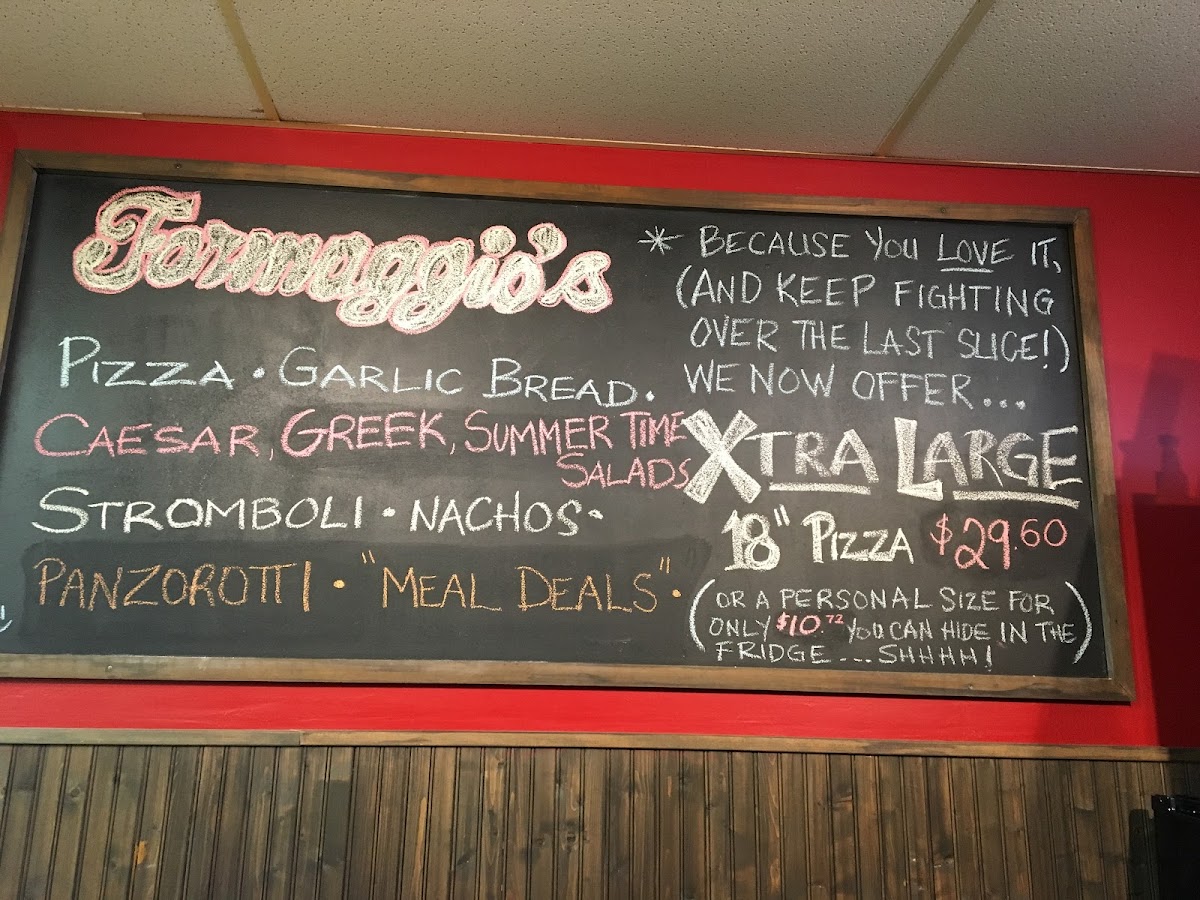 Formaggio's
PIZZA • GARLIC BREAD.
CAESAR, GREEK, SUMMER TIME
SALADS
STROMBOLI • NACHOS •
PANZOROTTI • "MEAL DEALS" •
* BECAUSE YOU LOVE IT,
(AND KEEP FIGHTING
OVER THE LAST SLICE!)
WE NOW OFFER...
XTRA LARGE
18" PIZZA $29.60
(OR A PERSONAL SIZE FOR
ONLY $10.72 YOU CAN HIDE IN THE
FRIDGE... SHHHH!)